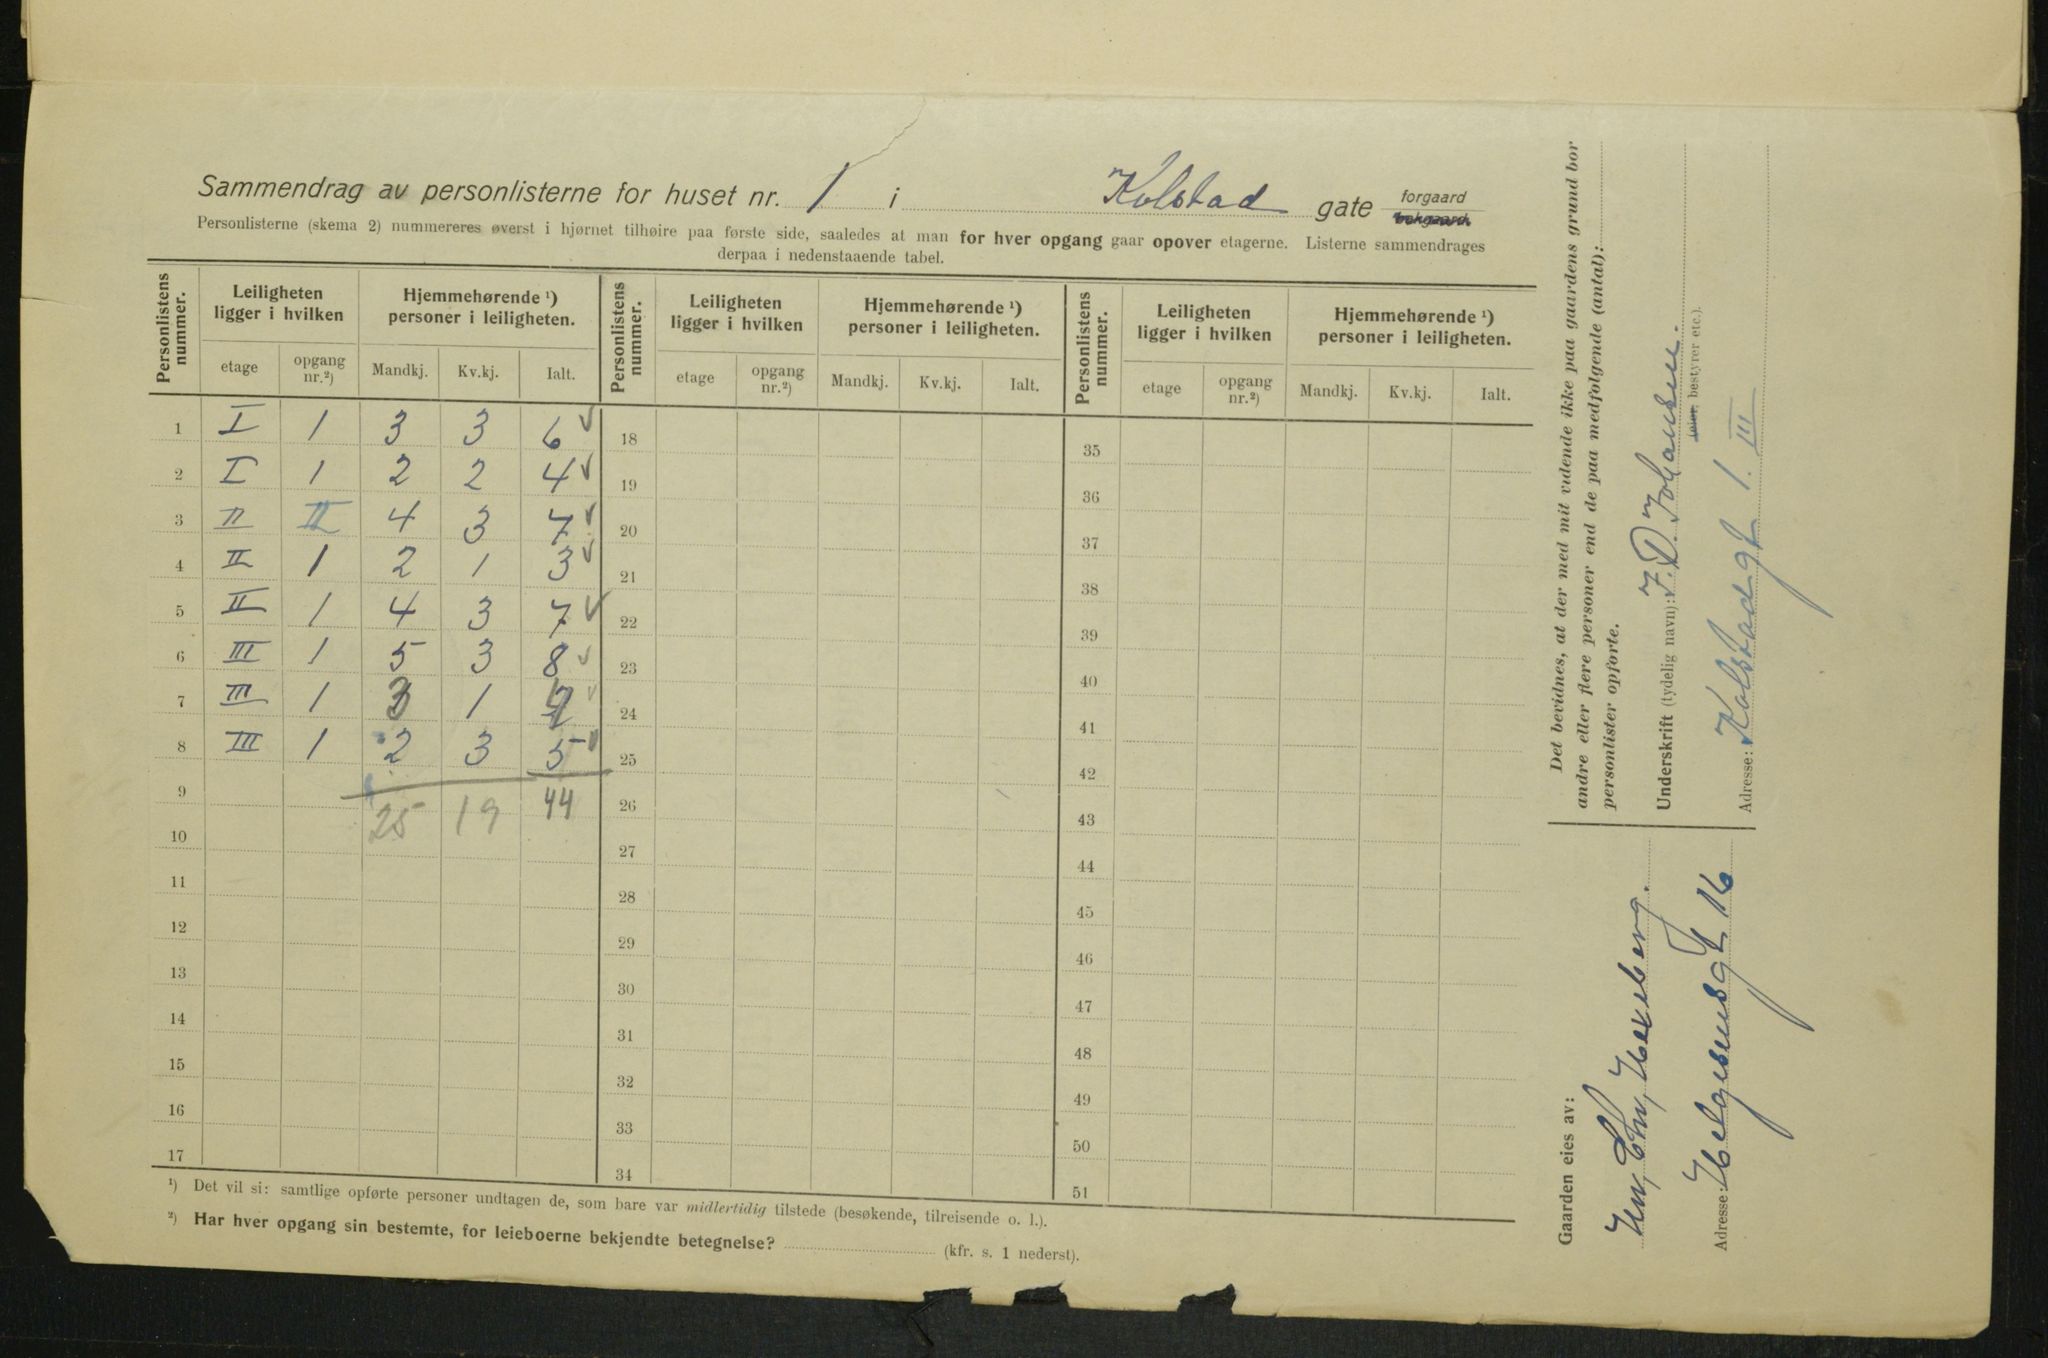 Sammendrag av personlisterne for huset nr. 1 i Kolstad gate forgaard bakgaard
Personlisterne (skema 2) nummereres øverst i hjørnet tilhøire paa første side, saaledes at man for hver opgang gaar opover etagerne. Listerne sammendrages
derpaa i nedenstaaende tabel.
Personlistens nummer. Leiligheten ligger i hvilken Hjemmehørende ¹) personer i leiligheten. Personlistens nummer. Leiligheten ligger i hvilken Hjemmehørende ¹) personer i leiligheten. Personlistens nummer. Leiligheten ligger i hvilken Hjemmehørende ¹) personer i leiligheten.
etage opgang nr.²) Mandkj. Kv.kj. Ialt. etage opgang nr.²) Mandkj. Kv.kj. Ialt. etage opgang nr.²) Mandkj. Kv.kj. Ialt.
1 I 1 3 3 6 ✓ 18 35
2 I 1 2 2 4 ✓ 19 36
3 II II 4 3 7 ✓ 20 37
4 II 1 2 1 3 ✓ 21 38
5 II 1 4 3 7 ✓ 22 39
6 III 1 5 3 8 ✓ 23 40
7 III 1 3 1 ✓ 24 41
8 III 1 2 3 5 ✓ 25 42
9 25 19 44 26 43
10 27 44
11 28 45
12 29 46
13 30 47
14 31 48
15 32 49
16 33 50
17 34 51
¹) Det vil si: samtlige opførte personer undtagen de, som bare var midlertidig tilstede (besøkende, tilreisende o. l.).
²) Har hver opgang sin bestemte, for leieboerne bekjendte betegnelse? (kfr. s. 1 nederst).
Det bevidnes, at der med mit vidende ikke paa gaardens grund bor
andre eller flere personer end de paa medfølgende (antal):
personlister opførte.
Underskrift (tydelig navn): J. D. Johansen.
leier, bestyrer etc.).
Adresse: Kolstadgt 1. III
Gaarden eies av:
Hexeberg.
Adresse: Helgesensgt 16